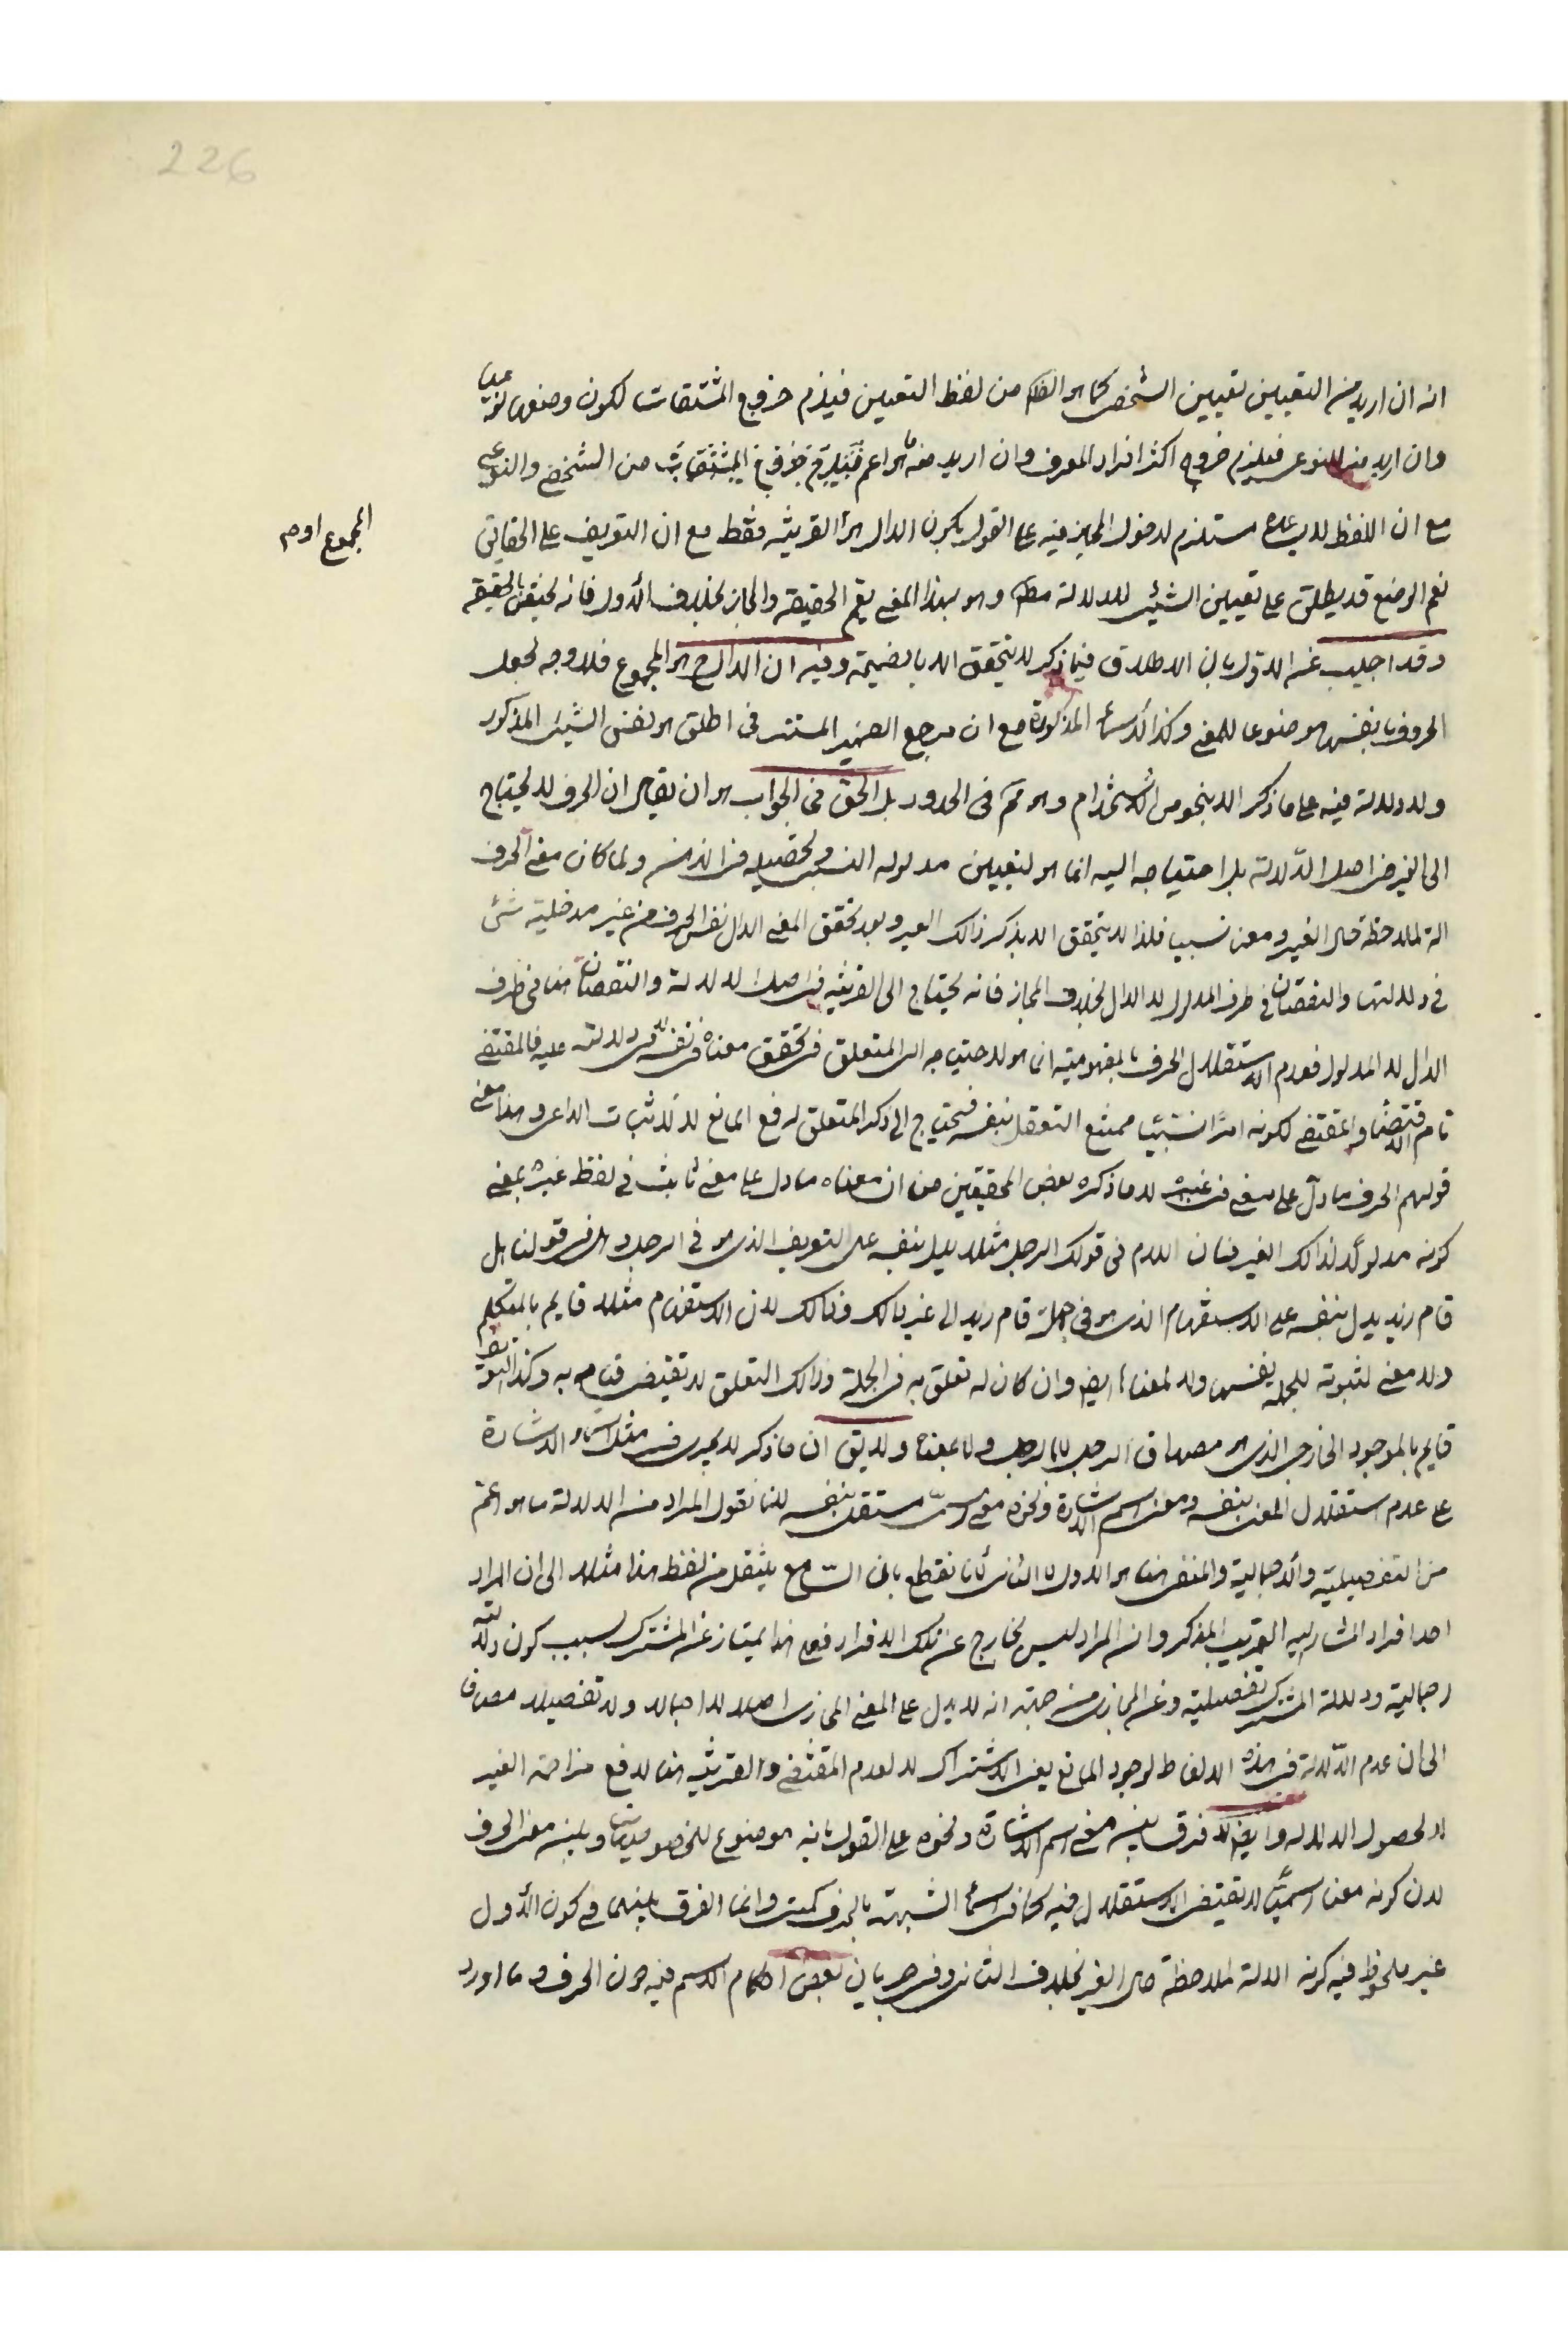 226
انه ان اريد من التعيين تعيين الشخص كما هو الظ من لفظ التعيين فيلزم خروج المشتقات لكون وضعها نوعيا
وان اريد منه النوعى فيلزم خروج اكثر افراد المعرف وان اريد منه ما هو اعم من الشخصى والنوعى
مع ان اللفظ لا يساعده مستلزم لدخول المجاز فيه على القول بكون الدال هو القرينة فقط مع ان التعريف على الحقائق
المجموع او م
نعم الوضع قد يطلق على تعيين الشيئ للدلالة مط وهو بهذا المعنى يعم الحقيقة والمجاز بخلاف الأول فانه يختص بالحقيقة
وقد اجيب عن الاول بان الاطلاق فيما ذكر لا يتحقق الا بالضميمة وفيه ان الدال ح هو المجموع فلا وجه لجعل
الحروف بانفسها موضوعا للمعنى وكذا الاسماء المذكورة مع ان مرجع الضمير المستتر فى اطلق هو نفس الشيئ المذكور
ولا دلالة فيه على ما ذكر الا بنحو من الاستخدام وهو مم فى الحدود بل الحق فى الجواب هو ان يقال ان الحرف لا يحتاج
الى الغير فى اصل الدلالة بل احتياجه اليه انما هو لتعيين مدلوله النسبى وتحصيله فى الذهن ولما كان معنى الحرف
الة لملاحظة حال الغير ومعنى نسبيا فلذا لا يتحقق الا بذكر ذلك الغير وبعد تحقق المعنى الدال نفس الحرف من غير مدخلية شئ
فى دلالتها والنقصان فى طرف المدلول لا الدال بخلاف المجاز فانه يحتاج الى القرينة فى اصل الدلالة والنقصان هنا فى طرف
الدال لا المدلول فعدم استقلال الحرف بالمفهومية انما هو لاحتياجه الى المتعلق فى تحقق معناه فى نفسه لا فى دلالته عليه فالمقتضى
تام الاقتضاء والمقتضى لكونه امرا نسبيا ممتنع التعقل بنفسه فيحتاج الى ذكر المتعلق لرفع المانع لا لاثبات الداعى وهذا معنى
قولهم الحرف ما دل على معنى فى غيره لا ما ذكره بعض المحققين من ان معناه ما دل على معنى ثابت فى لفظ غيره بمعنى
كونه مدلولا لذلك الغير فان اللام فى قولك الرجل مثلا يدل بنفسه على التعريف الذى هو فى الرجل وهل فى قولنا هل
قام زيد يدل بنفسه على الاستفهام الذى هو فى جملة قام زيد الى غير ذلك وذلك لان الاستفهام مثلا قايم بالمتكلم
ولا معنى لثبوته للجملة بنفسها ولا لمعناها ايضا وان كان له تعلق به فى الجملة وذلك التعلق لا يقتضى قيامه به وكذا التعريف
قايم بالموجود الخارجى الذى هو مصداق الرجل لا بالرجل ولا بمعناه ولا يق ان ما ذكر لا يجرى فى مثل اسماء الاشارة
على عدم استقلال المعنى بنفسه ومعنى اسم الاشارة ونحوه معنى اسمى مستقل بنفسه لانا نقول المراد من الدلالة ما هو اعم
من التفصيلية والاجمالية والمنفى هنا هو الاول لا الثانى لانا نقطع بان السامع ينتقل من لفظ هذا مثلا الى ان المراد
احد افراد المشار اليه القريب المذكر وان المراد ليس بخارج عن تلك الافراد فعلى هذا يمتاز عن المشترك بسبب كون دلالته
اجمالية ودلالة المشترك تفصيلية وعن المجاز من جهة انه لا يدل على المعنى المجازى اصلا لا اجمالا ولا تفصيلا مضافا
الى ان عدم الدلالة فى هذه الالفاظ لوجود المانع يعنى الاشتراك لا لعدم المقتضى والقرينة هنا لدفع مزاحمة الغير
لا لحصول الدلالة وايضا لا فرق بين معنى اسم الاشارة ونحوه على القول بانه موضوع للخصوصيات وبين معنى الحرف
لان كونه معنى اسميا لا يقتضى الاستقلال فيه كما فى اسماء الشبيهة بالحرف كمتى وانما الفرق بينهما فى كون الأول
غير ملحوظ فيه كونه الة لملاحظة حال الغير بخلاف الثانى وفى جريان بعض احكام الاسم فيه دون الحرف وما اورد